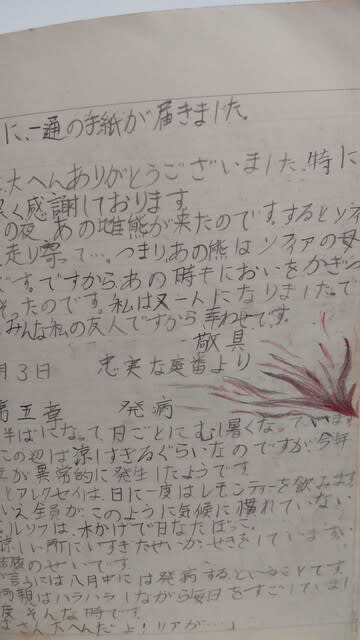 に、一通の手紙が届きました。
大へんありがとうございました、特に
く感謝しております。
の夜、あの雌熊が来たのです。するとソフ
走り寄って…。つまり、あの熊はソフィアの母
です。ですから、あの時もにおいをかぎつ
ったのです。私は又一人になりました。で
みんな私の友人ですから幸わせです。
敬具
月3日 忠実な応番より
第五章 発病
半ばになって、日ごとにむし暑くなっています
この辺は涼しすぎるぐらいなのですが、今年
が異常的に発生したようです。
とアレクセイは、日に一度はレモンティーを飲みます
いえ全員が、このように気候に慣れていない
ルソフは、木かげで日なたぼっこ。
涼しい所にいすぎたせいか、せきをしています。
のせいです。
言うには八月中には発病するということです。
両親はハラハラしながら毎日をすごしていま
度そんな時です。
さん、大へんだよ!リアが…」